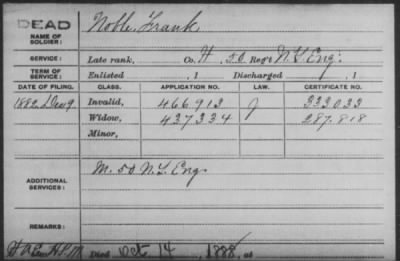 DEAD
NAME OF SOLDIER: Noble, Frank,
SERVICE: Late rank, Co. H, 50 Reg't N.Y. Eng:
TERM OF SERVICE: Enlisted , 1 Discharged , 1
DATE OF FILING. CLASS. APPLICATION NO. LAW. CERTIFICATE NO.
1882, Dec 9. Invalid, 466913 J 333033
Widow, 437334 287.818
Minor,
ADDITIONAL SERVICES: M. 50 N.Y. Eng.
REMARKS:
Died Oct 14, 1888, at